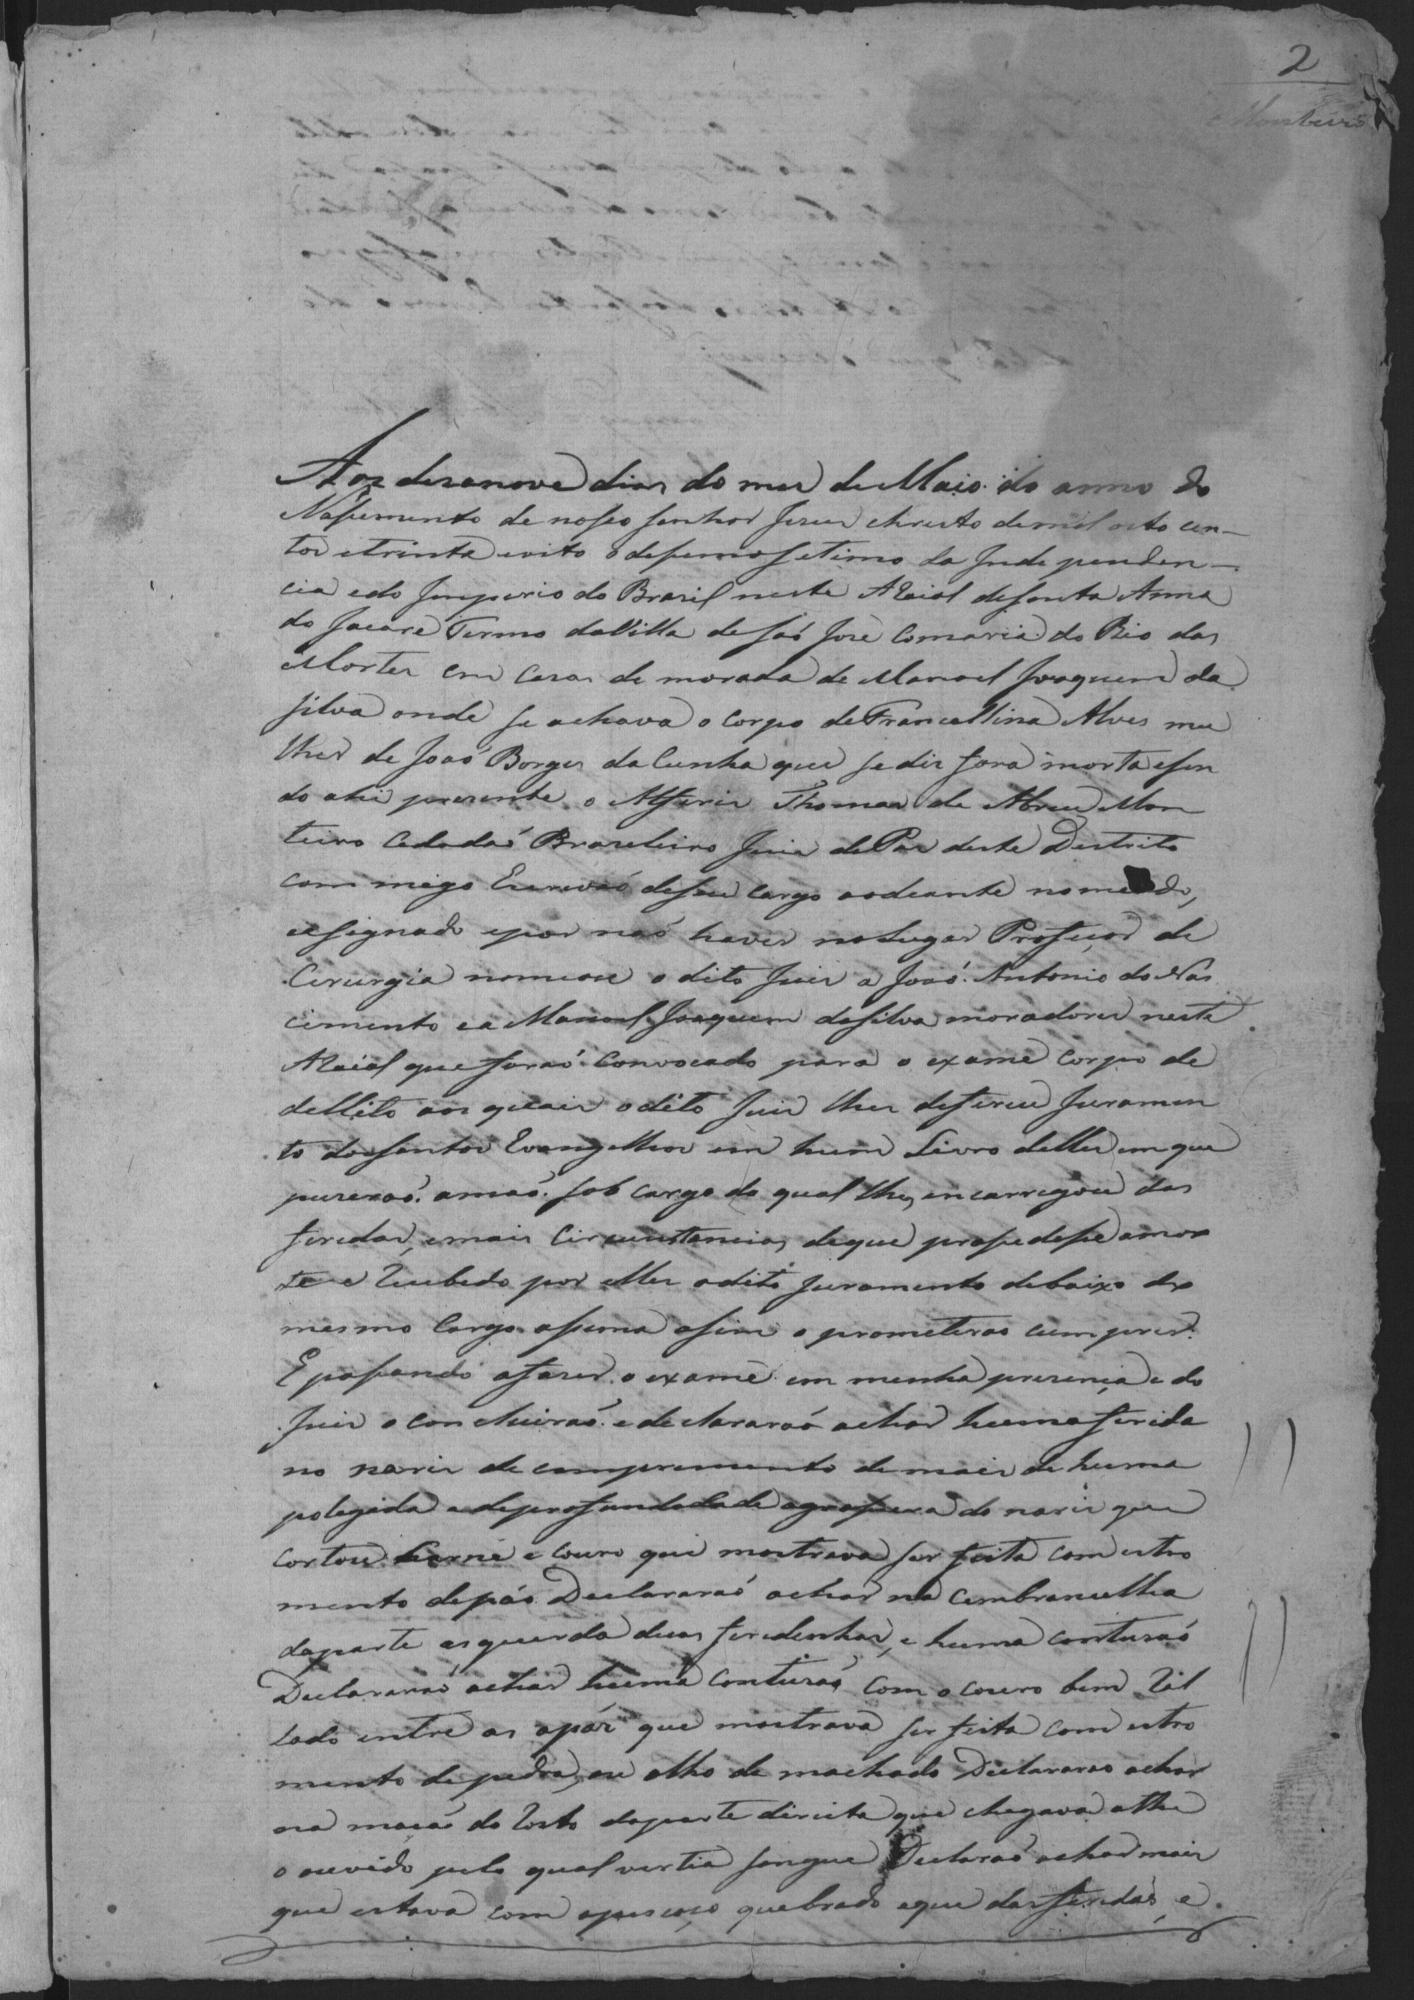 2
Monteiro
Aos desanove dias do mes de Maio do anno do
Nascimento de nosso senhor Jesus christo de mil oito cen-
tos etrinta eoito odessimo setimo da Independen-
cia edo Imperio do Brasil neste ARaial de santa Anna
do Jacare Termo daVilla de saó José Comarca do Rio das
Mortes em casas de morada de Manoel Joaquim da
silva onde se achava o corpo de Francellina Alves mu
lher de Joaó Borges da Cunha que se dis fora morta esen
do ahi presente o Alferes Thomas de Abreu Mon
teiro Cedadaó Brazeleiro Juis de Pas deste Destrito
com migo Escrivaó deseu cargo aodeante nomeado,
eassignado epor naó haver nolugar Professor de
Cirurgia nomeou o dito Juis a Joaó Antonio do Nas
cimento e a Manoel Joaquim dasilva moradores neste
ARaial que foraó convocado para o exame corpo de
dellito aos quais odito Juis lhes defereu Juramen
to dossantos Evangelhos em hum Livro delles em que
puseraó amaó sob cargo do qual lhes encarregou das
feredas, emais circunstancias de que
e Recebedo por elles odito juramento debaixo do
mesmo cargo assima asim o prometeraó cumprir.
E passando afaser o exame em menha presença e do
Juis o concluiraó e declararaó achar huma ferida
no naris de compremento de mais de huma
polegida e de profundedade agrossura do naris que
cortou carne e couro que mostrava ser feita com estro
mento depáo Declararaó achar na cembrancelha
daparte esquerda duas feredinhas, e huma contusaó
Declararaó achar huma contusaó com o couro bem Ral
lado entre as apás que mostrava ser feita com estro
mento de pedra, ou olho de machado Declararaó achar
na maçaó do Rosto daparte direita que chegava athe
o ouvido pelo qual vertia sangue Declaraó achar mais
que estava com opescoço quebrado eque das feridas, e